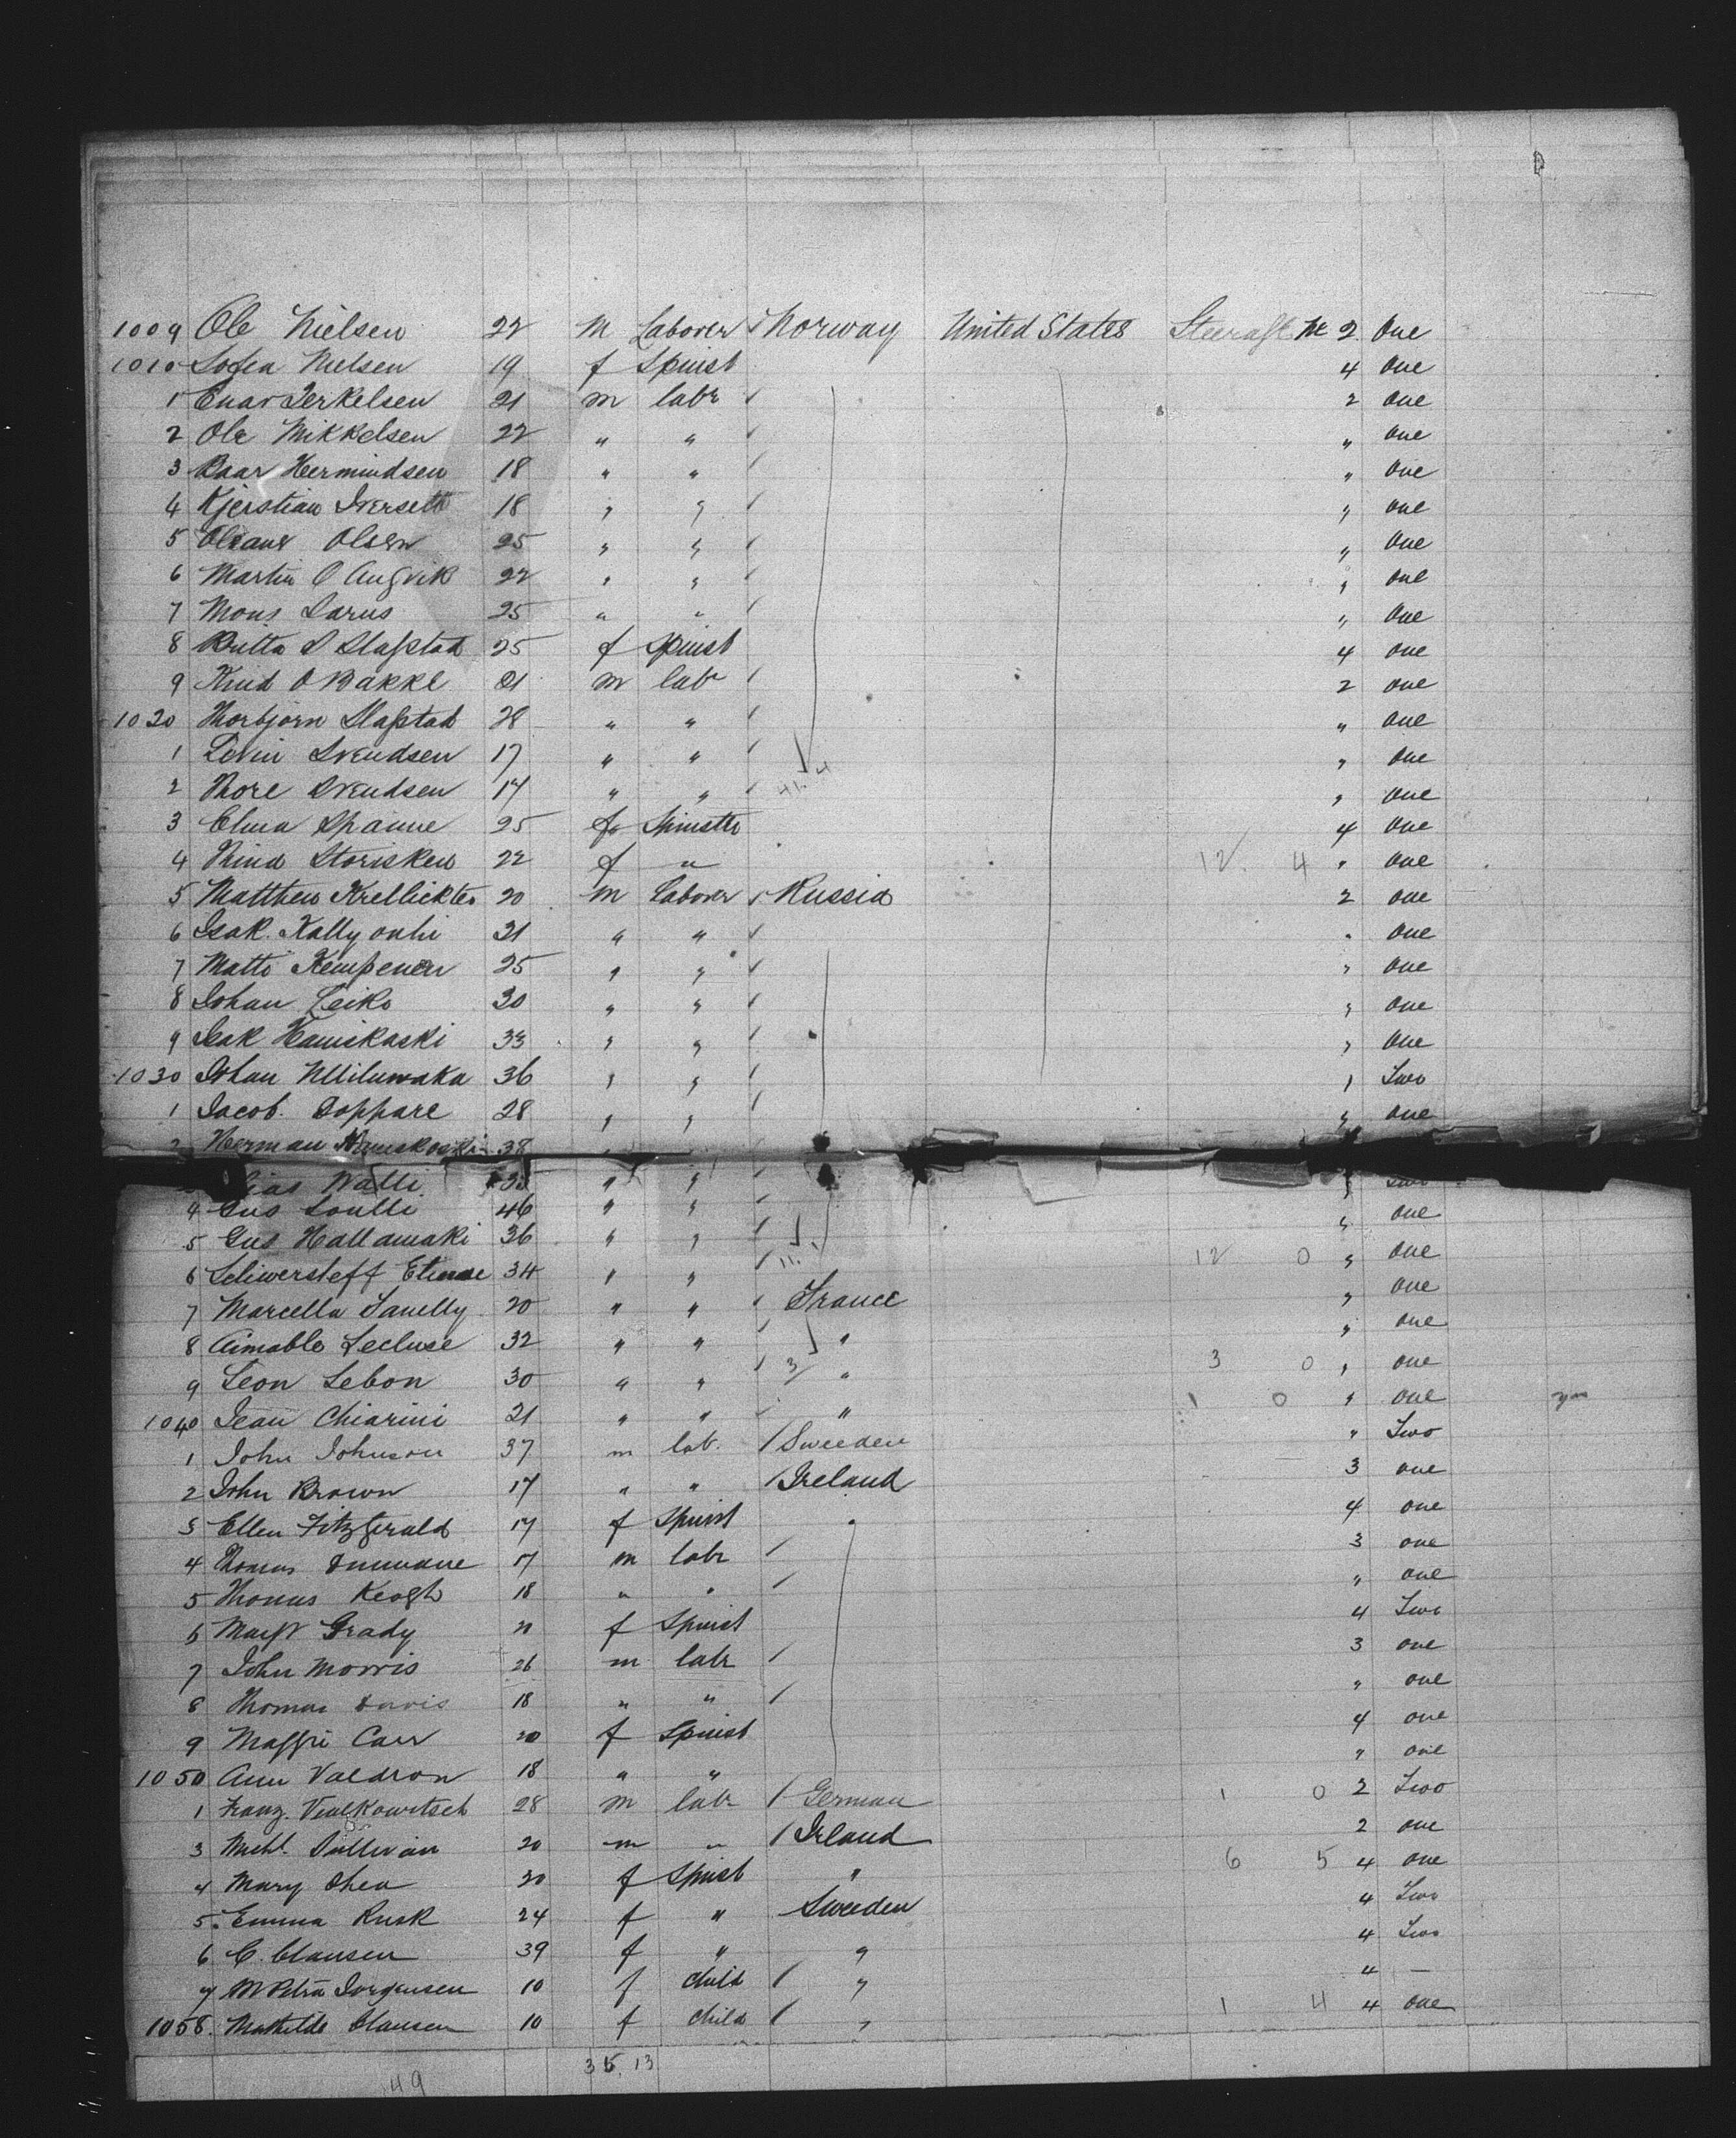 1009 Ole Nielsen 22 M Laborer Norway United States Steerage No 2 One
1010 Sofia Nielsen 19 f Spinst 4 One
1 Enar Terkelsen 21 m labr 2 One
2 Ole Mikkelsen 22 " " " One
3 Raar Hermindsen 18 " " " One
4 Kjerstian Iversett 18 " " " One
5 Oleane Olsen 25 " " " One
6 Martin O Augvik 22 " " " One
7 Mons Larus 25 " " " One
8 Britta S Slafstad 25 f Spinst 4 One
9 Knud O Bakke 21 m labr 2 One
1020 Thorbjorn Slafstad 28 " " " One
1 Levin Svendsen 17 " " " One
2 Thore Svendsen 14 " " " One
3 Elma Spanne 25 f Spinster 4 One
4 Nina Storisken 22 f " 12 4 " One
5 Matthew Krellickter 20 m Laborer Russia 2 One
6 Isak Kallyonhi 21 " " " One
7 Matti Kempenen 25 " " " One
8 Johan Leiko 30 " " " One
9 Isak Hamikaski 33 " " " One
1030 Johan Milunaka 36 " " " Two
1 Jacob Soppare 28 " " " One
2 Herman 38
Walli 35 " " " Two
4 Gus Soulli 46 " " " One
5 Gus Hallamaki 36 " " 12 0 " One
6 Schwersteff Etienne 34 " " " One
7 Marcella Sanelly 20 " " France " One
8 Aimable Lecluse 32 " " " 3 0 " One
9 Leon Lebon 30 " " 3 " 1 0 " One
1040 Jean Chiarini 21 " " " " Two
1 John Johnson 37 m lab. Sweeden 3 One
2 John Brown 17 " " Ireland 4 One
3 Ellen Fitzgerald 17 f Spinst 3 One
4 Thomas 17 m labr " One
5 Thomas Keogh 18 " " 4 Two
6 Magt Grady f Spinst 3 One
7 John Morris 26 m labr " One
8 Thomas Davis 18 " " 4 One
9 Maggie Carr 20 f Spinst " One
1050 Ann Valdron 18 " " 2 Two
1 Franz Vialkowitsch 28 m labr German 1 0 2 One
3 Michl. Sullivan 20 m " Irland
4 Mary Shea 20 f Spinst " 6 5 4 One
5 Emma Rusk 24 f " Sweeden 4 Two
6 C. Clausen 39 f " " 4 Two
7 M Petra Jorgensen 10 f child " 4 —
1058. Mathilde Clausen 10 f child " 1 4 4 One
49 35, 13